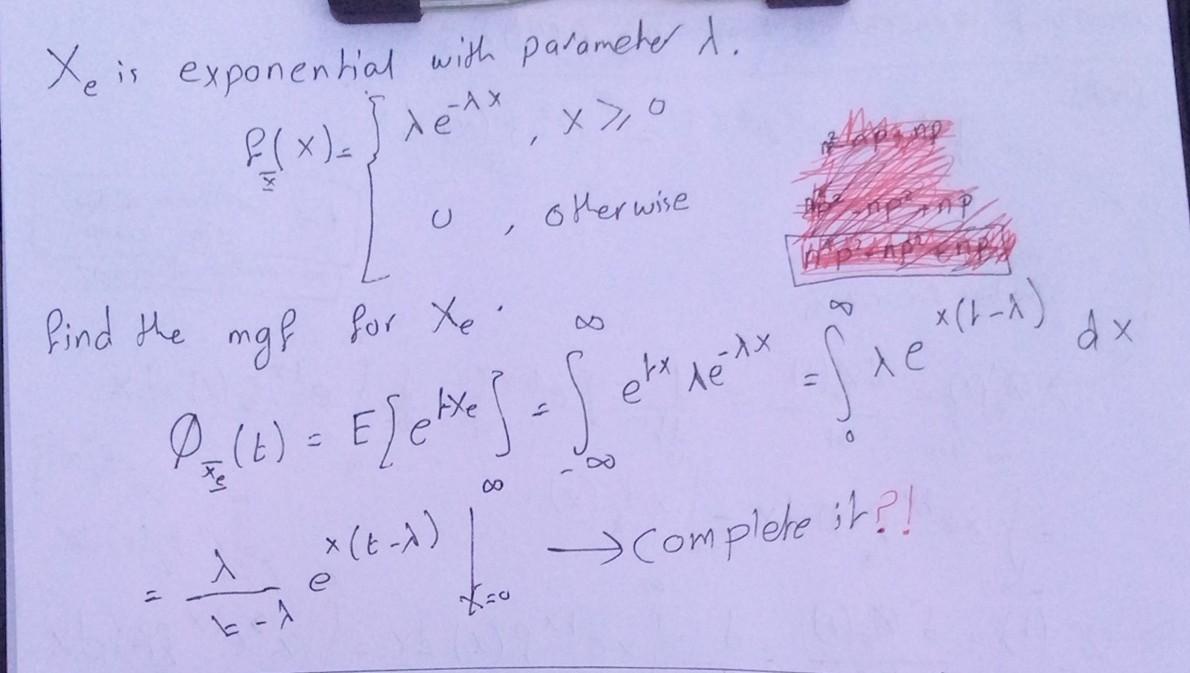 X_e is exponential with parameter λ.
f_X(x) = { λe^{-λx} , x ≥ 0
0 , otherwise
find the mgf for X_e .
Ø_{X_e}(t) = E[e^{tX_e}] = ∫_{-∞}^{∞} e^{tx} λe^{-λx} = ∫_0^∞ λ e^{x(t-λ)} dx
= λ/(t-λ) e^{x(t-λ)} |_{x=0}^{∞} → Complete it?!